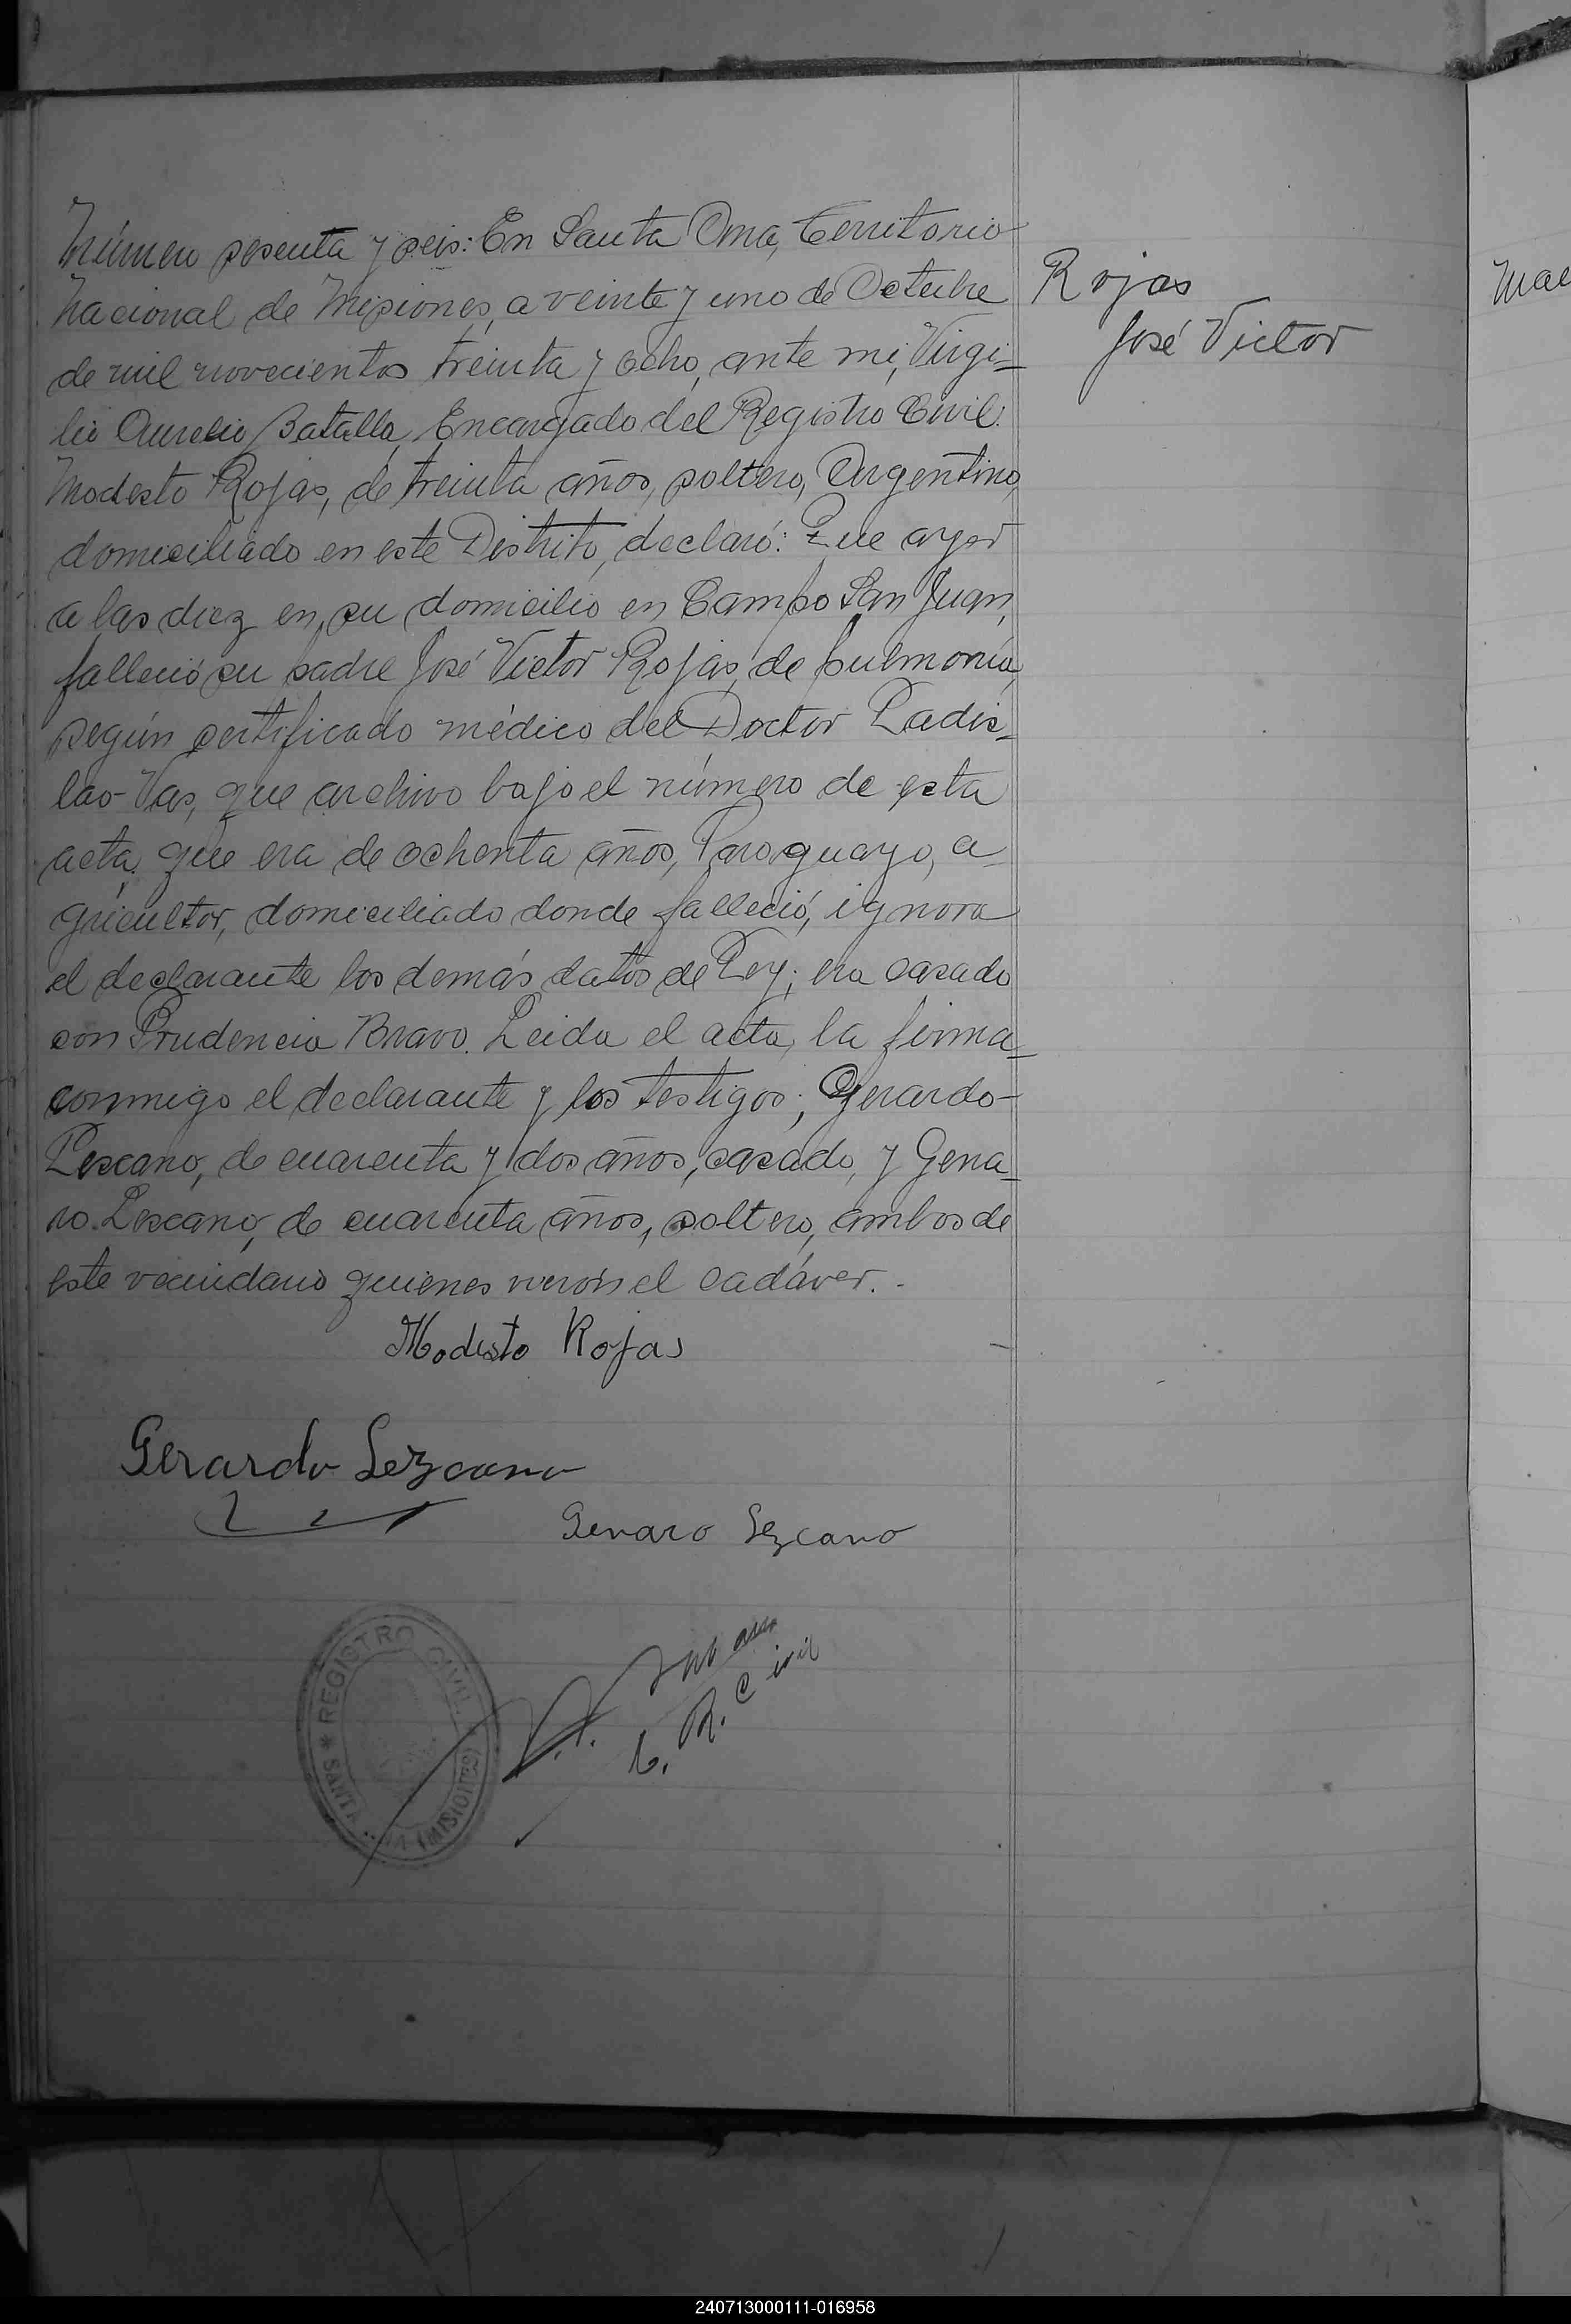 Número sesenta y seis: En Santa Ana, Territorio
Nacional de Misiones, a veinte y uno de Octubre
de mil novecientos treinta y ocho, ante mi, Virgi-
lio Aurelio Batalla, Encargado del Registro Civil.
Modesto Rojas, de treinta años, soltero, Argentino,
domiciliado en este Distrito, declaró: Que ayer
a las diez en su domicilio en Campo San Juan,
falleció su padre José Victor Rojas, de pulmonía,
según certificado médico del Doctor Ladis-
lao Vas, que archivo bajo el número de esta
acta, que era de ochenta años, Paraguayo, a-
gricultor, domiciliado donde falleció, ignora
el declarante los demás datos de Ley; era casado
con Prudencia Bravo. Leida el acta, la firma
conmigo el declarante y los testigos; Gerardo
Lescano, de cuarenta y dos años, casado, y Gena-
ro Lescano, de cuarenta años, soltero, ambos de
este vecindario quienes vieron el cadáver.-
Rojas
José Victor
Modesto Rojas
Gerardo Lezcano
Genaro Lezcano
REGISTRO CIVIL
SANTA ANA (MISIONES)
E. R. Civil
Mae
240713000111-016958